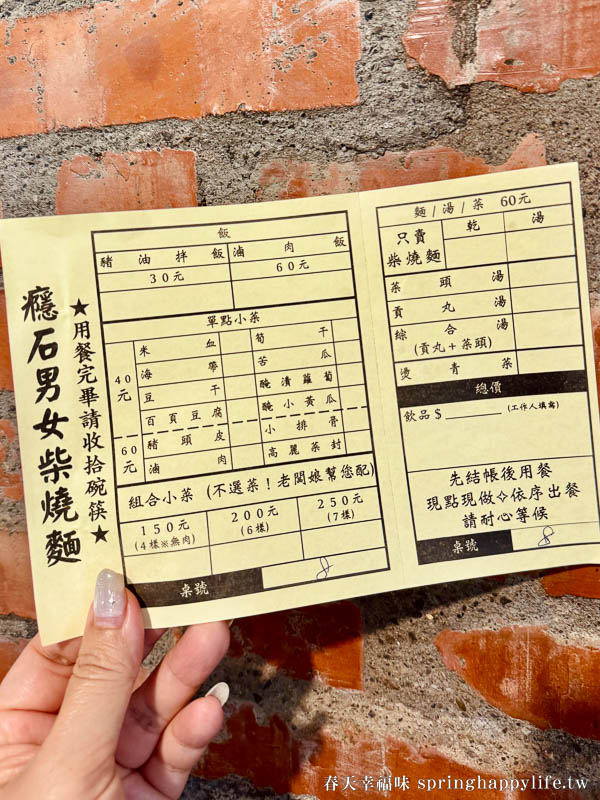 癮石男女柴燒麵
★用餐完畢請收拾碗筷★
飯
豬油拌飯 滷肉飯
30元 60元
單點小菜
40元
米血 筍干
海帶 苦瓜
豆干 醃漬蘿蔔
百頁豆腐 醃小黃瓜
60元
豬頭皮 小排骨
滷肉 高麗菜封
組合小菜 (不選菜!老闆娘幫您配)
150元 200元 250元
(4樣※無肉) (6樣) (7樣)
桌號 8
麵/湯/菜 60元
只賣柴燒麵 乾 湯
菜頭湯
貢丸湯
綜合湯
(貢丸+菜頭)
燙青菜
總價
飲品$ (工作人填寫)
先結帳後用餐
現點現做✧依序出餐
請耐心等候
桌號 8
春天幸福味 springhappylife.tw